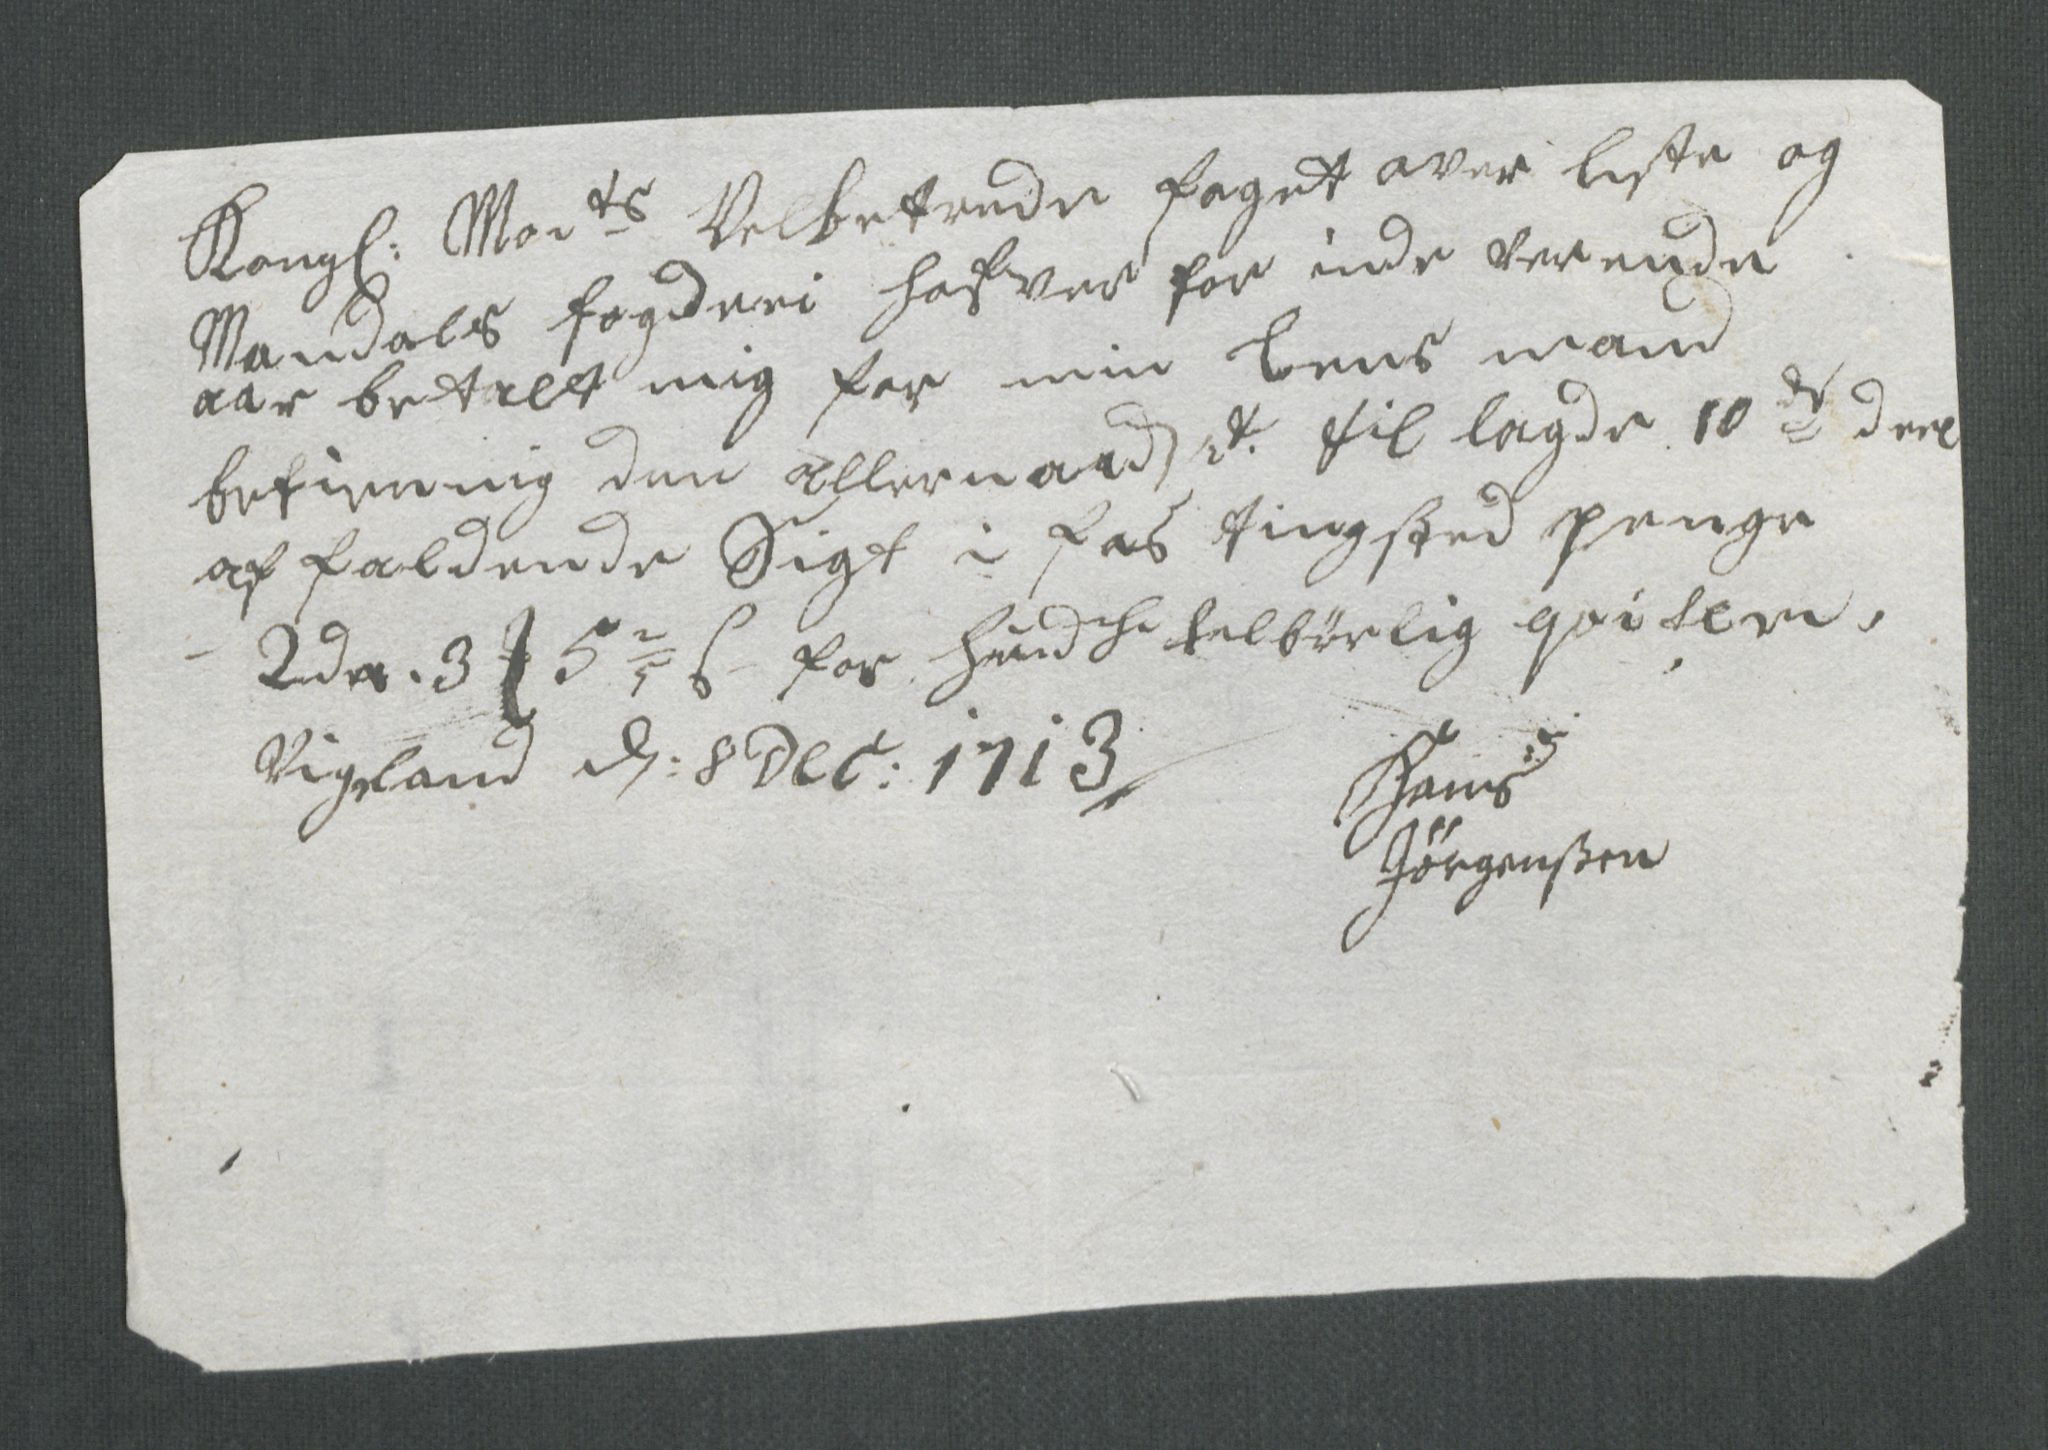 Kongl: Mai^ts Velbetrede foget over Liste og
Mandals fogderi hafver for inde verende
aar betalt mig for min Lens mand
betienning den allernaad st. til lagde 10^de deel
af faldende Sigt i tingsted penge
2 dr. 3 5 for huilche velbørlig qviteri,
Vigeland d: 8 Dec: 1713
Hans
Jörgenßen